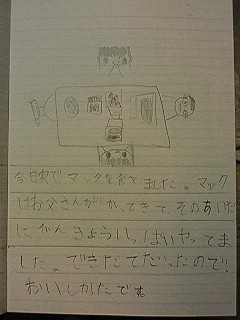 今日家でマックを食べました。マック
はお父さんがかってきて、そのあいだ
にべんきょういっぱいやってま
した。できたてだったので!
おいしかたです